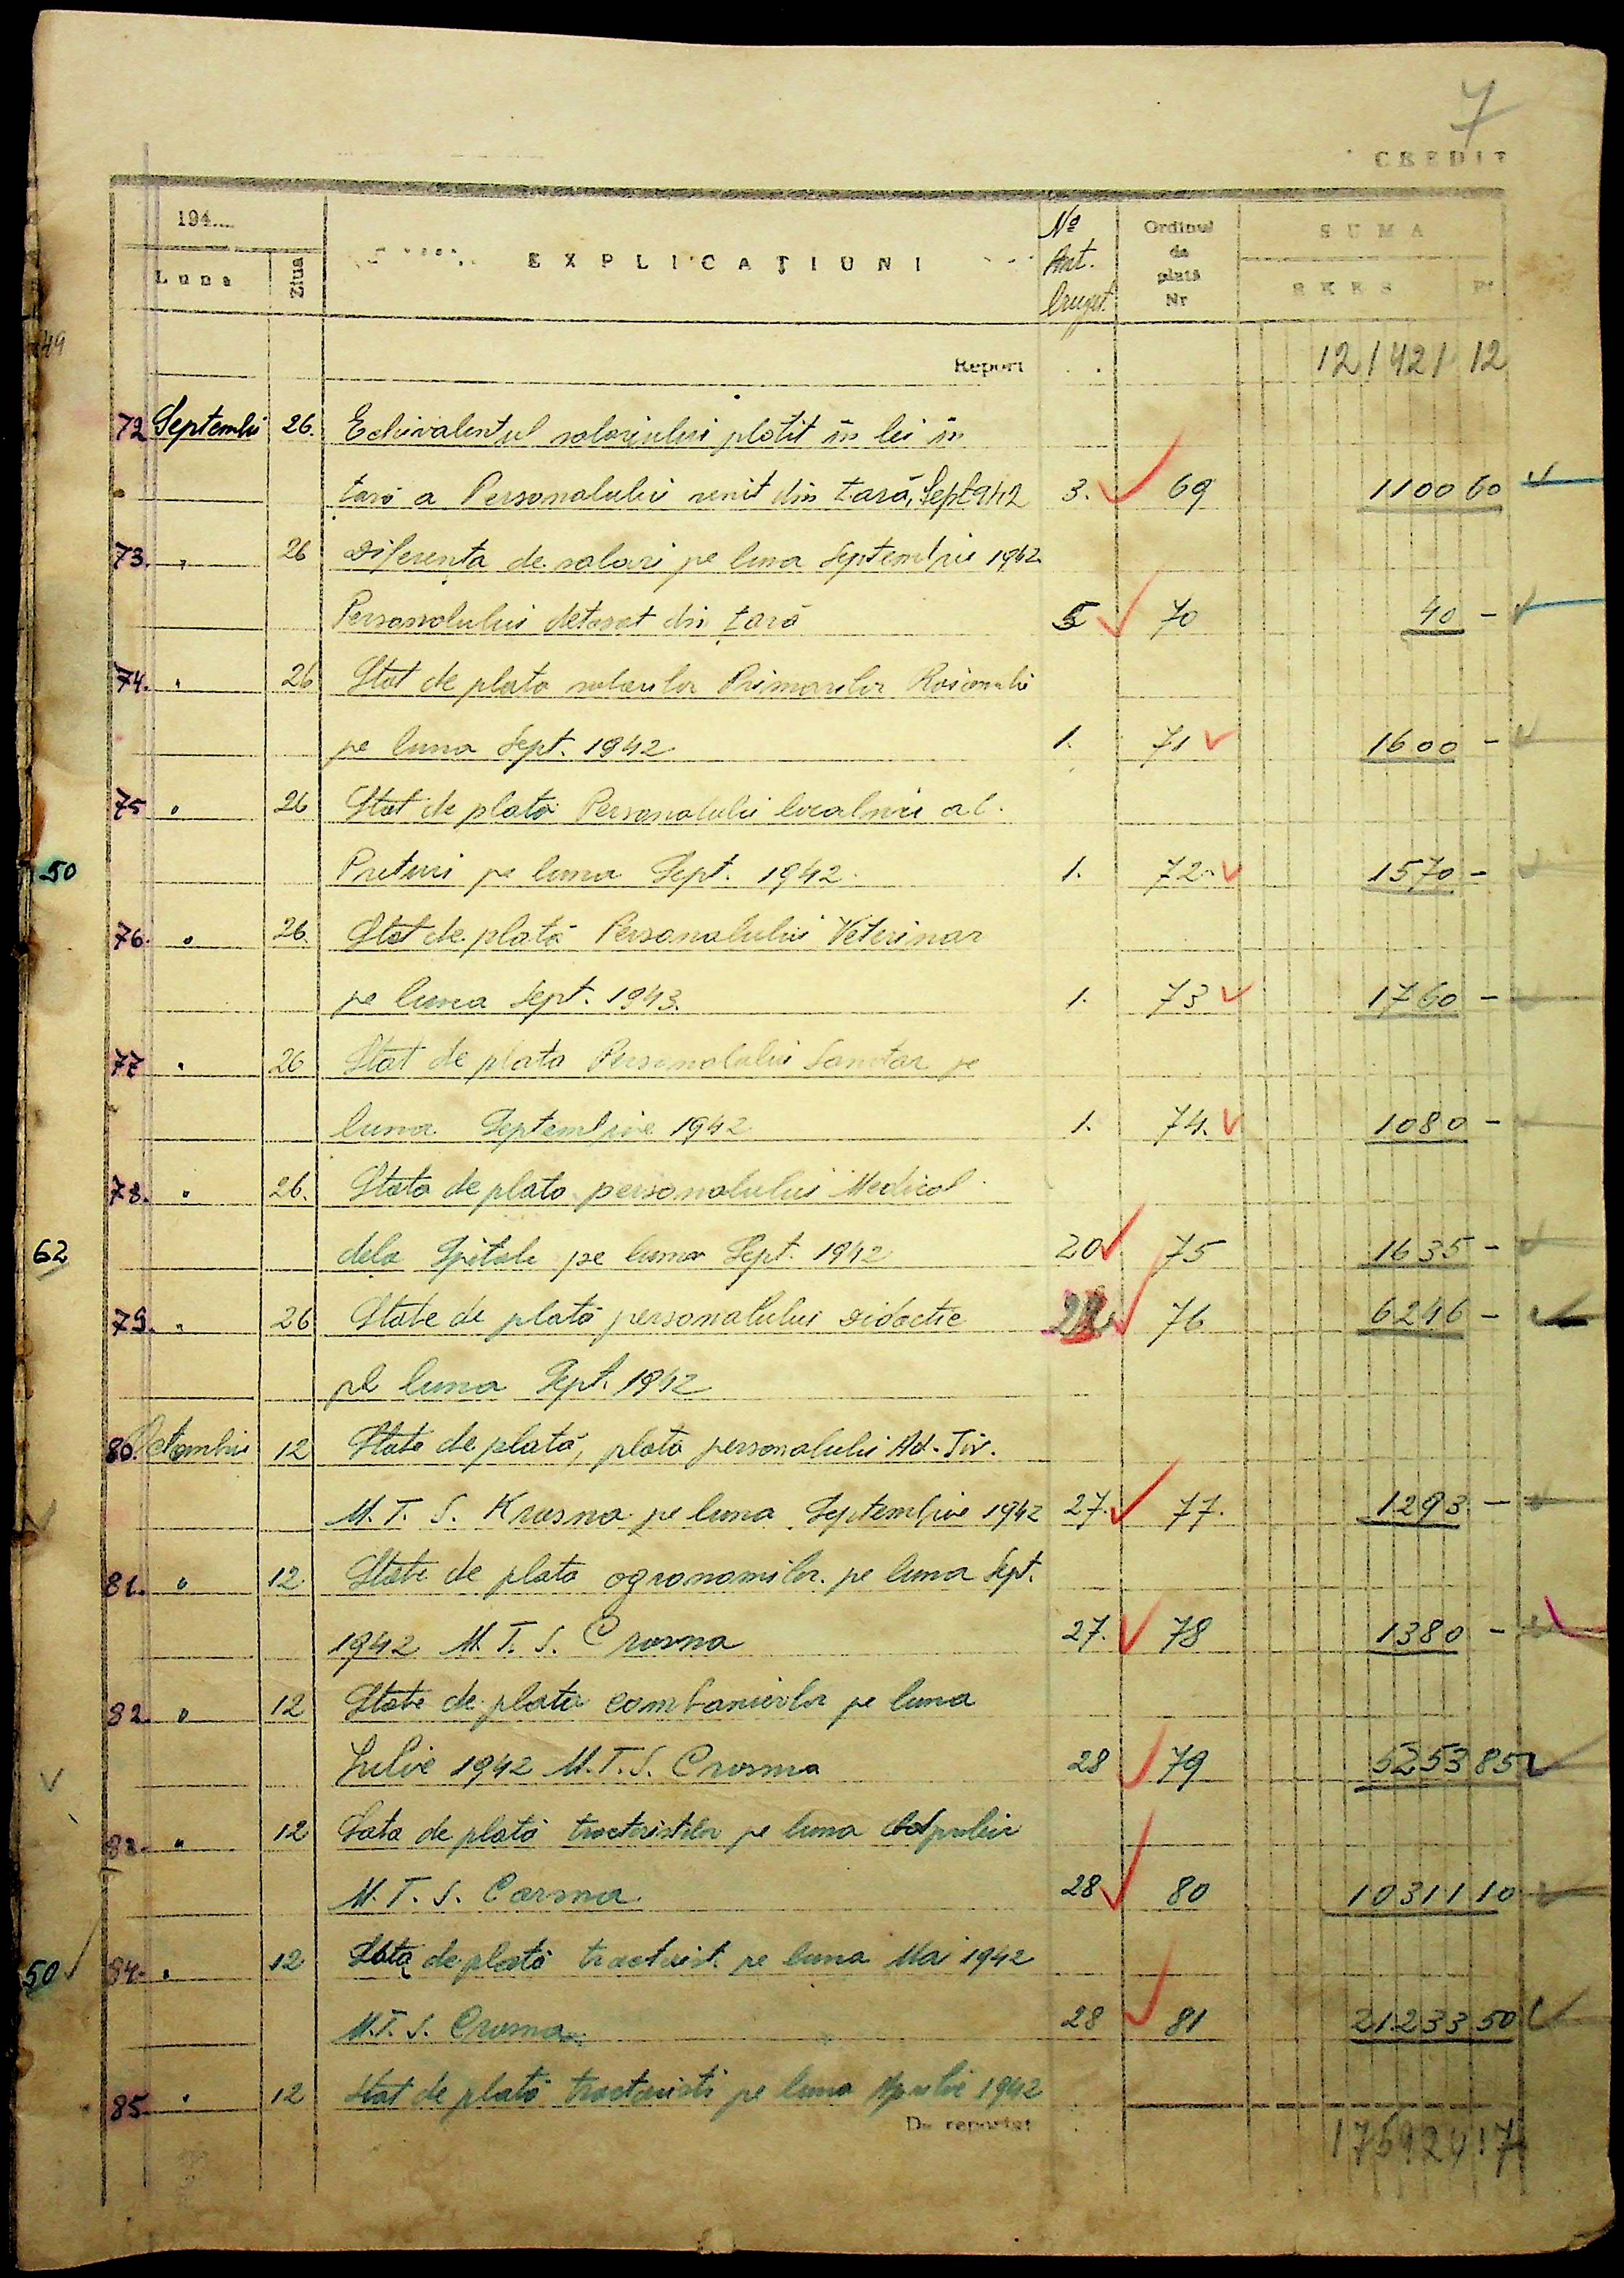 7
CREDIT
194....
Luna Ziua EXPLICAŢIUNI No Art. buget. Ordinul de plată Nr SUMA
RKKS Pf
49
Report 121421 12
72 Septembrie 26. Echivalentul salariului plătit în lei în
țară a Personalului venit din țară, Sept 942 3. 69 1100 60
73. " 26 Diferența de salari pe luna Septembrie 1942
Personalului detașat din țară 5 70 40 -
74. " 26 Stat de plata salarilor Primarilor Raionali
pe luna Sept. 1942 1. 71 1600 -
75 " 26 Stat de plată Personalului localnici al
50 Preturi pe luna Sept. 1942 1. 72 1570 -
76. " 26. Stat de plată Personalului Veterinar
pe luna Sept. 1943. 1. 73 1760 -
77 " 26 Stat de plata Personalului Sanitar pe
luna Septembrie 1942 1. 74. 1080 -
78. " 26. State de plata personalului Medical
62 dela Spitale pe luna Sept. 1942 20 75 1635 -
79. " 26 State de plată personalului Didactic 76 6246 -
pe luna Sept. 1942
80. Octombrie 12 State de plată, plata personalului Ad-Tiv.
M. T. S. Krasna pe luna Septembrie 1942 27. 77. 1293 -
81. " 12 State de plata agronomilor pe luna Sept.
1942 M. T. S. Crasna 27. 78 1380 -
82. " 12 State de plata combanierilor pe luna
Iulie 1942 M. T. S. Crasna 28 79 5253 85
83. " 12 de plată tractoristilor pe luna
M. T. S. Carsna 28 80 10311 10
50 84. " 12 de plată tractorist. pe luna Mai 1942
M. T. S. Crasna 28 81 21233 50
85. " 12 Stat de plată tractoristi pe luna Aprilie 1942
De reportat 175924 17